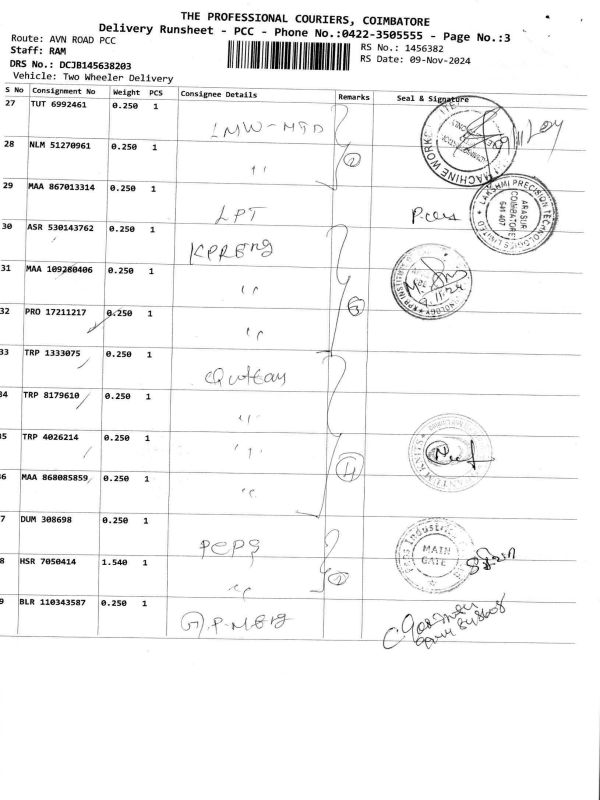 THE PROFESSIONAL COURIERS, COIMBATORE
Delivery Runsheet - PCC - Phone No.:0422-3505555 - Page No.:3
Route: AVN ROAD PCC
RS No.: 1456382
Staff: RAM
RS Date: 09-Nov-2024
DRS No.: DCJB145638203
Vehicle: Two Wheeler Delivery
S No Consignment No Weight PCS Consignee Details Remarks Seal & Signature
27 TUT 6992461 0.250 1 LMW-MTD
28 NLM 51270961 0.250 1 "
MACHINE WORKS
29 MAA 867013314 0.250 1 LPT
LAKSHMI PRECISION TECHNOLOGIES LIMITED
ARASUR
COIMBATORE
641 407
30 ASR 530143762 0.250 1 KPREng
31 MAA 109280406 0.250 1 "
KPR INSTITUTE
9.11.24
32 PRO 17211217 0.250 1 "
33 TRP 1333075 0.250 1
34 TRP 8179610 0.250 1 "
35 TRP 4026214 0.250 1 "
4
36 MAA 868085859 0.250 1 "
7 DUM 308698 0.250 1 PCPS
MAIN
GATE
8 HSR 7050414 1.540 1 "
9 BLR 110343587 0.250 1